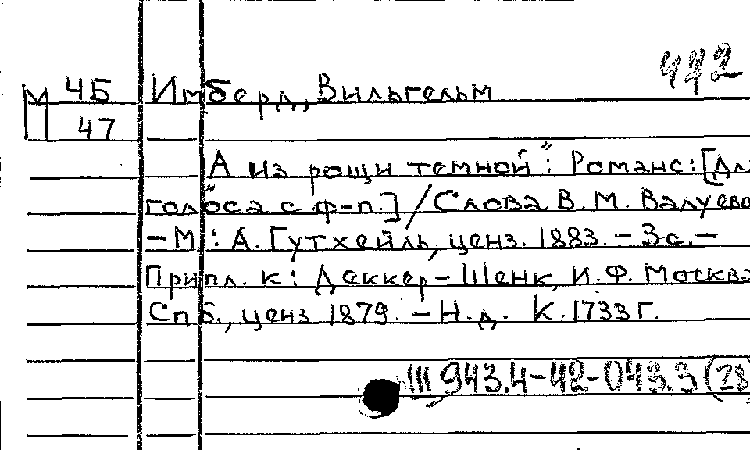 442
М 4Б Имберд, Вильгельм
47
А из рощи темной": Романс: [Дл
голоса с ф-п.] / Слова В. М. Валуево
– М.: А. Гутхейль, ценз. 1883. – 3с. –
Припл. к: Деккер-Шенк, И. Ф. Москва
Спб., ценз 1879. – Н.д. К. 1733г.
III 943.4-42-043.3 (28